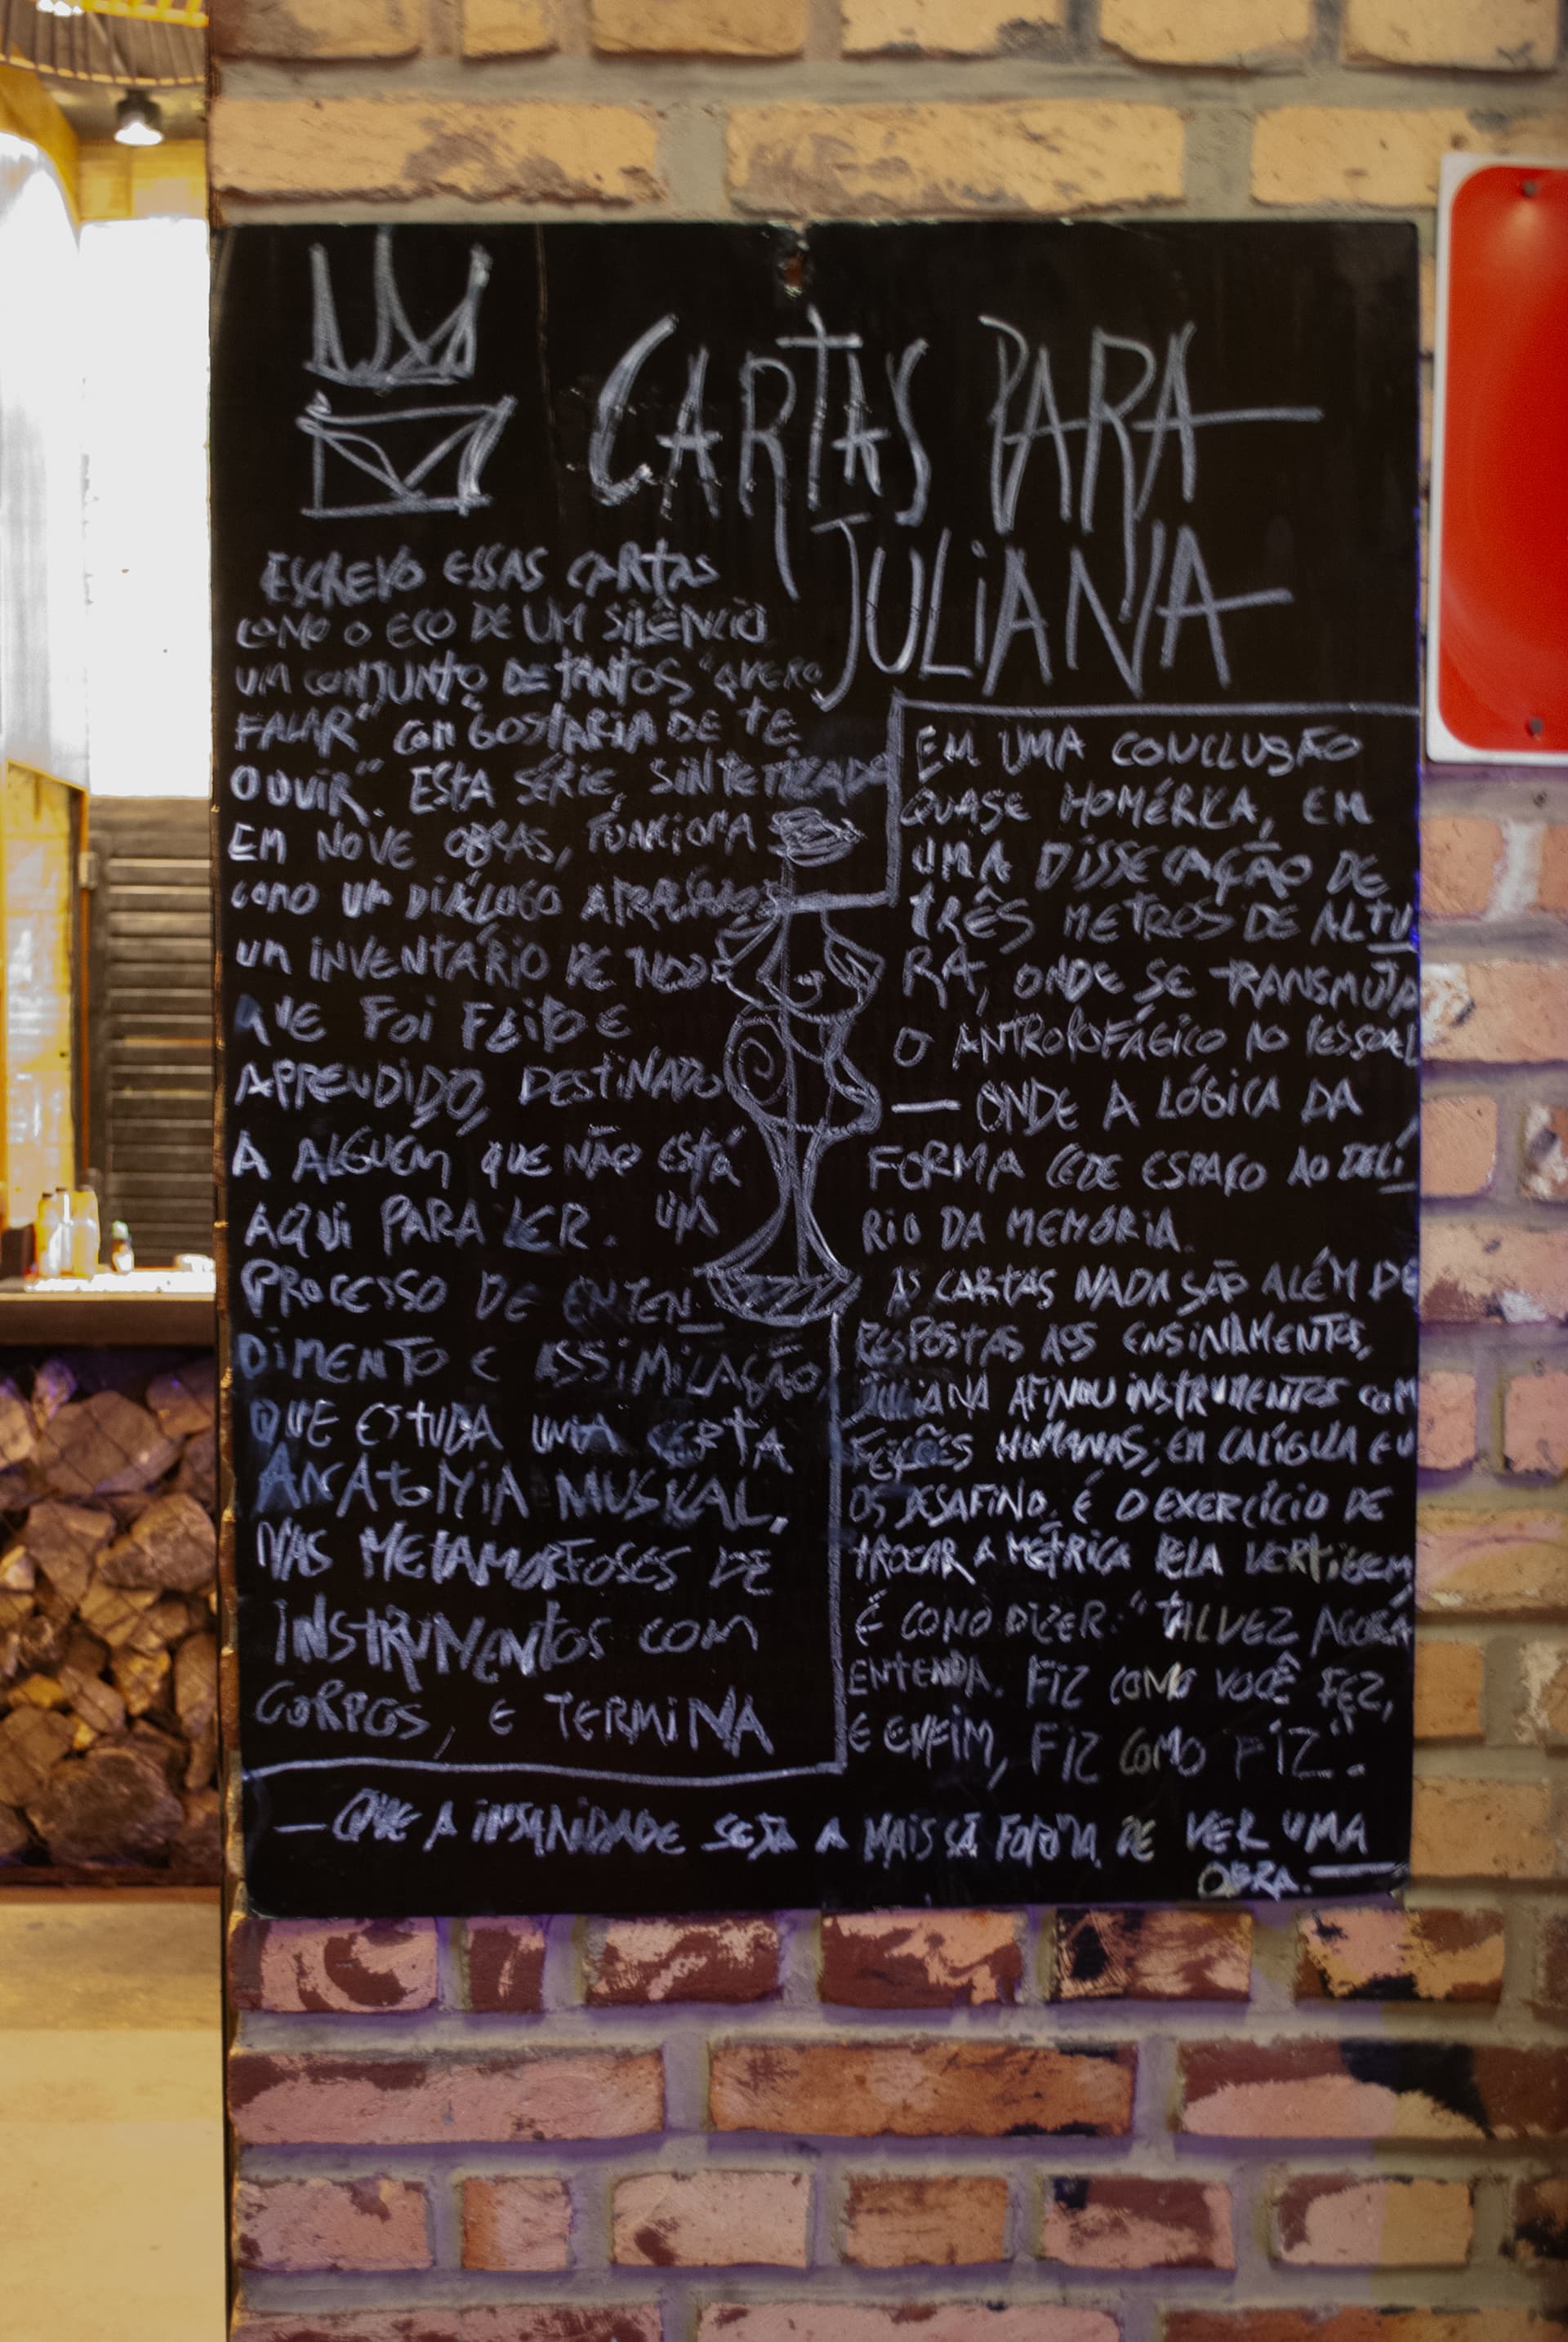 CARTAS PARA
JULIANA
ESCREVO ESSAS CARTAS
COMO O ECO DE UM SILÊNCIO
UM CONJUNTO DE TANTOS "QUERO
FALAR" COM "GOSTARIA DE TE
OUVIR". ESTA SÉRIE, SINTETIZADA
EM NOVE OBRAS, FUNCIONA
COMO UM DIÁLOGO ATRASADO,
UM INVENTÁRIO DE TUDO
QUE FOI FEITO E
APRENDIDO, DESTINADO
A ALGUÉM QUE NÃO ESTÁ
AQUI PARA LER. UM
PROCESSO DE ENTEN
DIMENTO E ASSIMILAÇÃO,
QUE ESTUDA UMA CERTA
ANATOMIA MUSICAL,
NAS METAMORFOSES DE
INSTRUMENTOS COM
CORPOS, E TERMINA
EM UMA CONCLUSÃO
QUASE HOMÉRICA, EM
UMA DISSECAÇÃO DE
TRÊS METROS DE ALTU
RA, ONDE SE TRANSMUTA
O ANTROPOFÁGICO NO PESSOAL
— ONDE A LÓGICA DA
FORMA CEDE ESPAÇO AO DELÍ
RIO DA MEMÓRIA.
AS CARTAS NADA SÃO ALÉM DE
RESPOSTAS AOS ENSINAMENTOS,
JULIANA AFINOU INSTRUMENTOS COM
FEIÇÕES HUMANAS; EM CALÍGULA EU
OS DESAFINO. É O EXERCÍCIO DE
TROCAR A MÉTRICA PELA VERTIGEM,
É COMO DIZER: "TALVEZ AGORA
ENTENDA. FIZ COMO VOCÊ FEZ,
E ENFIM, FIZ COMO FIZ".
— QUE A INSANIDADE SEJA A MAIS SÃ FORMA DE VER UMA
OBRA. —